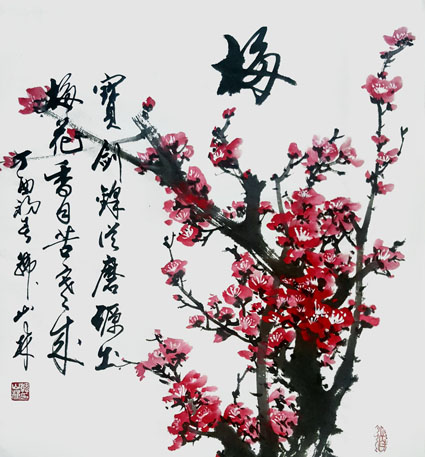 梅
寶劍鋒從磨礪出
梅花香自苦寒來
丁酉